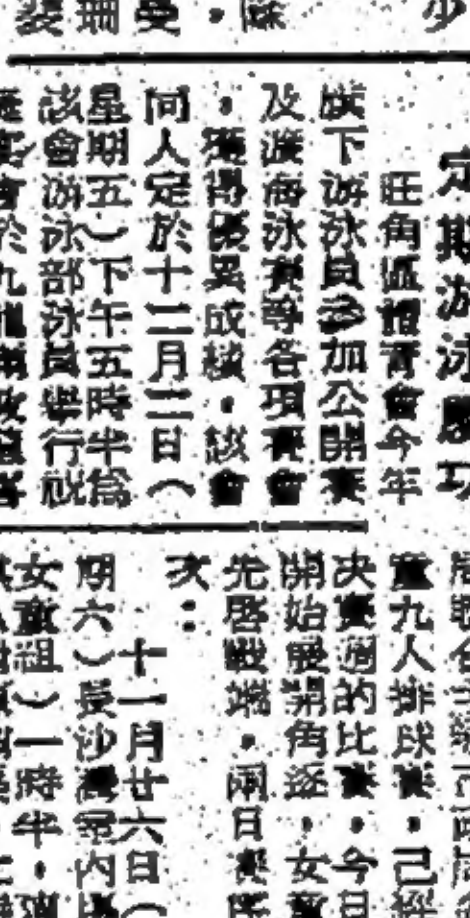 少
曼
珊
裴
定期游泳慶功
旺角區體育會今年
旗下游泳員參加公開賽
及渡海泳賽等各項賽會
，獲得優異成績。該會
同人定於十二月二日（
星期五）下午五時半為
該會游泳部泳員舉行祝
童九人排球賽，己經
决賽週的比賽，今日
開始展開角逐，女童
先啓戰端，兩日賽
次：
十一月廿六日（
期六）長沙灣室內場
女童組）一時半，